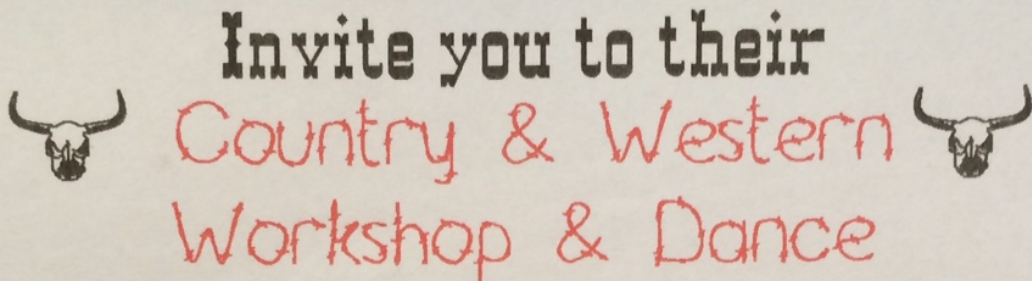 Invite you to their
Country & Western
Workshop & Dance